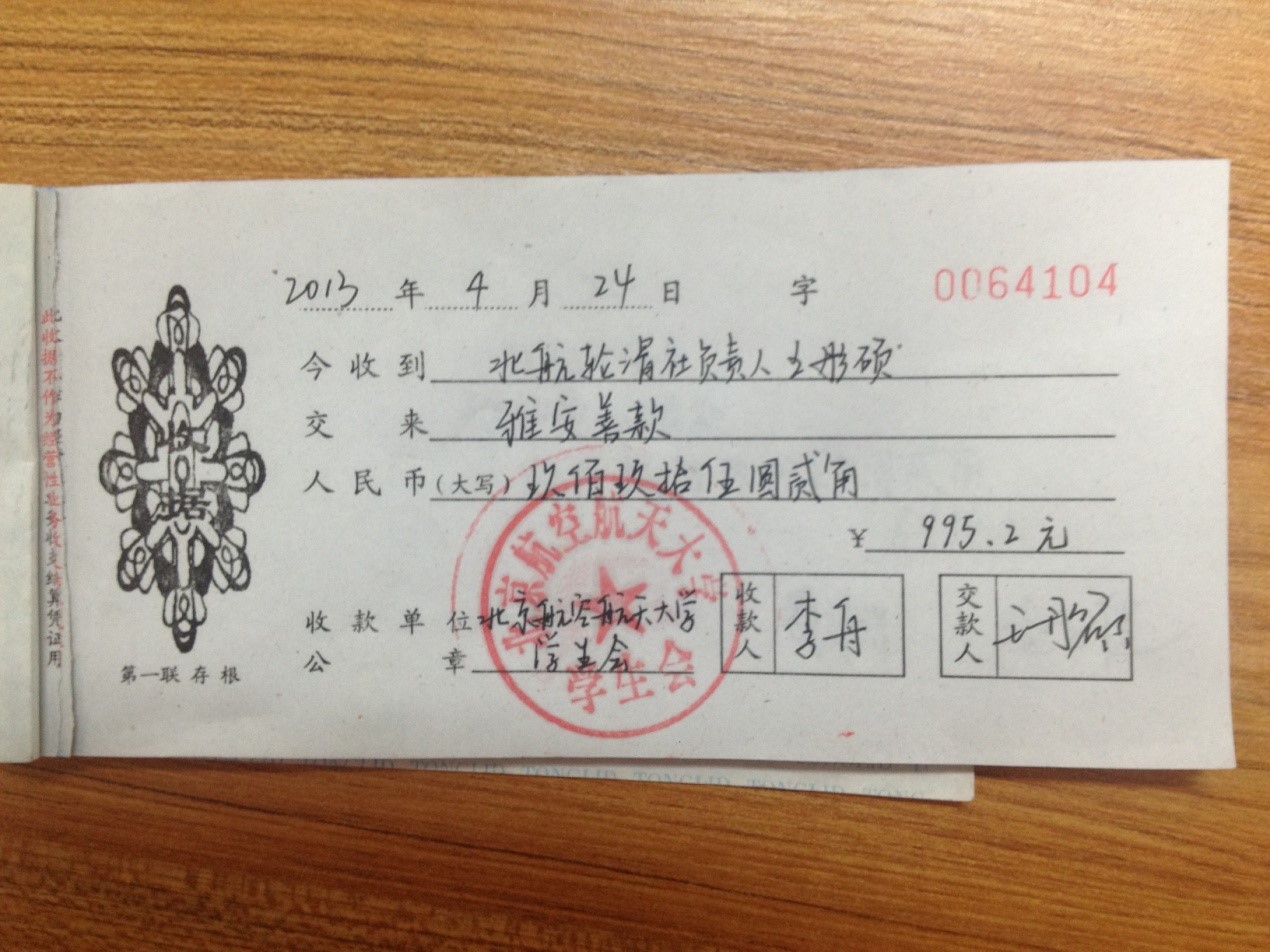 2013 年 4 月 24 日 字 0064104
今收到 北航轮滑社负责人王彤硕
交来 雅安善款
人民币(大写) 玖佰玖拾伍圆贰角
¥ 995.2元
收款单位 北京航空航天大学
公章 学生会
收款人 李丹
交款人 王彤硕
北京航空航天大学
学生会
收据
第一联 存根
此收据不作为经营性业务收支结算凭证用
TONGLIP TONGLIP TONGLIP